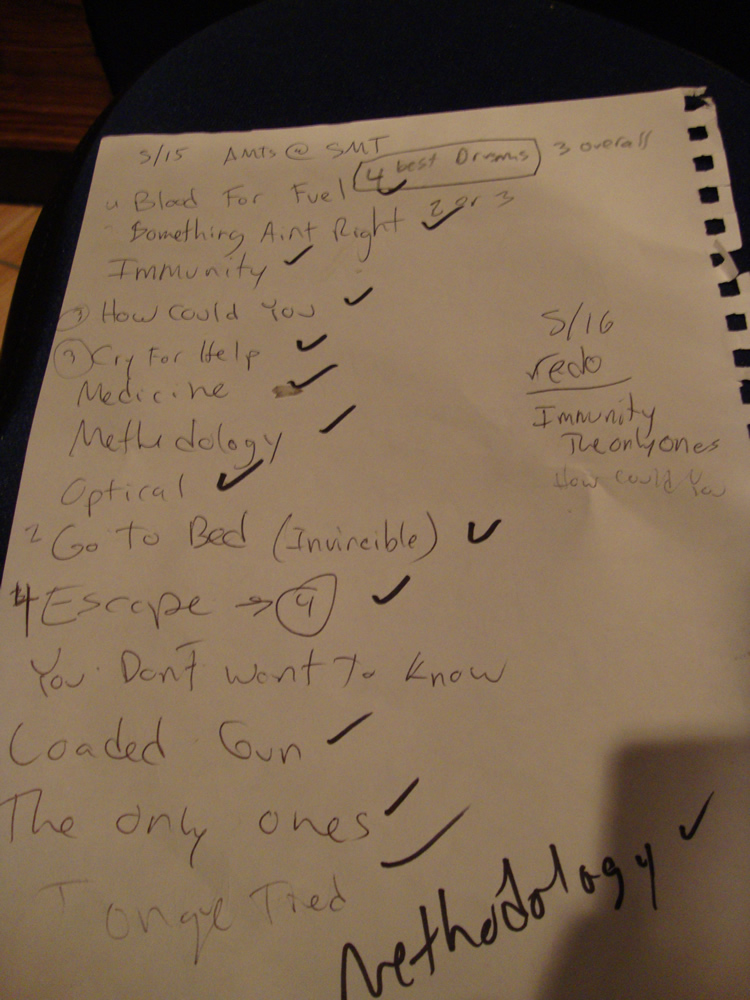 5/15 AMTs @ SMT
4 Blood For Fuel ✓ 4 best Drums 3 overall
Something Aint Right ✓ 2 or 3
Immunity ✓
3 How Could You ✓
3 Cry For Help ✓
Medicine ✓
Methodology ✓
Optical ✓
2 Go To Bed (Invincible) ✓
4 Escape → 4 ✓
You Don't Want To Know
Loaded Gun ✓
The only ones ✓
Tongue Tied ✓
Methodology ✓
5/16
redo
Immunity
The only ones
How Could You